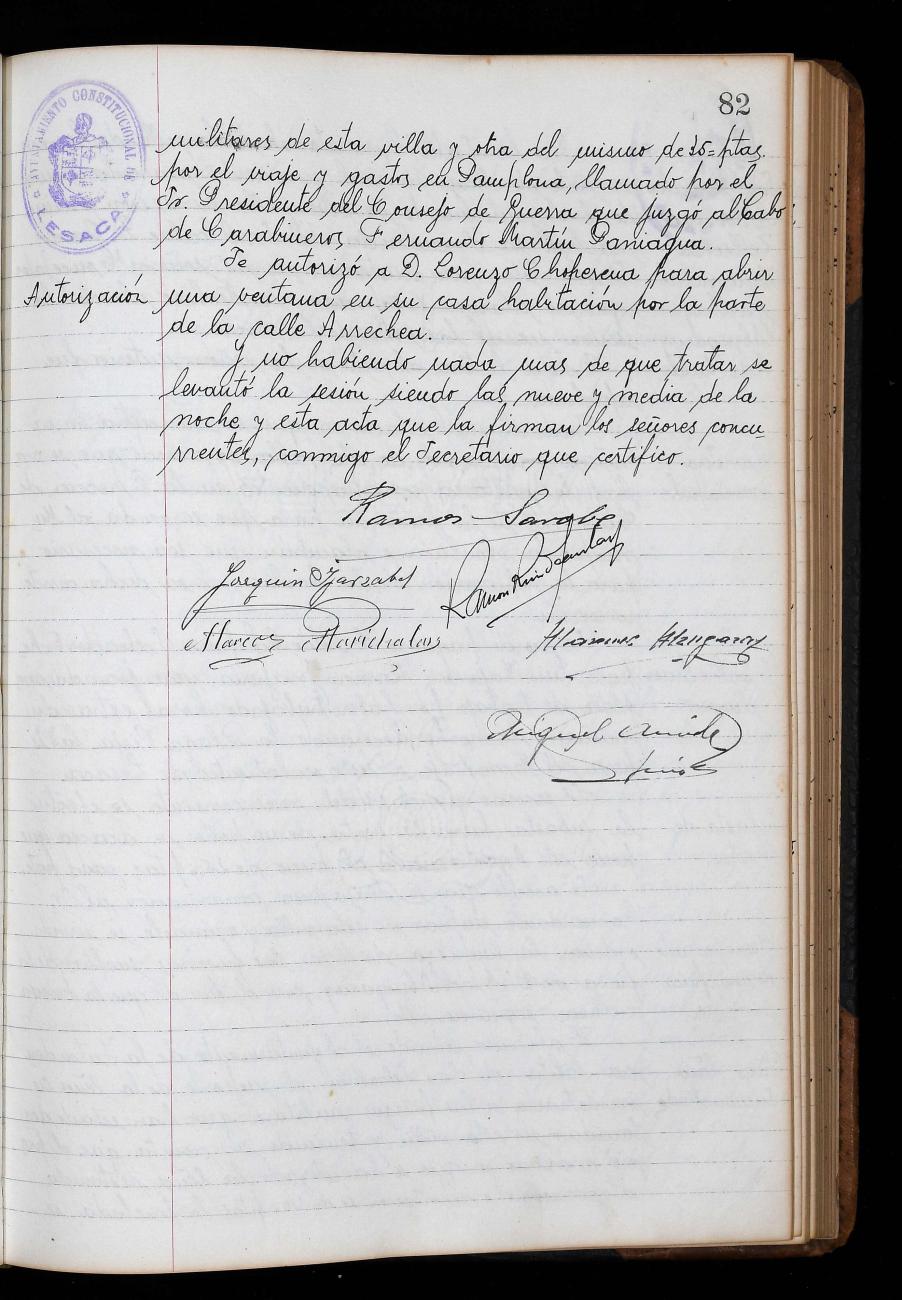 82
AYUNTAMIENTO CONSTITUCIONAL DE
LESACA
militares de esta villa y otra del mismo de 35= ptas.
por el viaje y gastos en Pamplona, llamado por el
Sr. Presidente del Consejo de Guerra que juzgó al Cabo
de Carabineros, Fernando Martín Paniagua.
Autorización
Se autorizó a D. Lorenzo Choperena para abrir
una ventana en su casa habitación por la parte
de la calle Arrechea.
Y no habiendo nada mas de que tratar se
levantó la sesión siendo las nueve y media de la
noche y esta acta que la firman los señores concu-
rrentes, conmigo el Secretario que certifico.
Ramos Sarobe
Joaquin Yarzabal
Ramon
Marcos Marichalar
Miguel